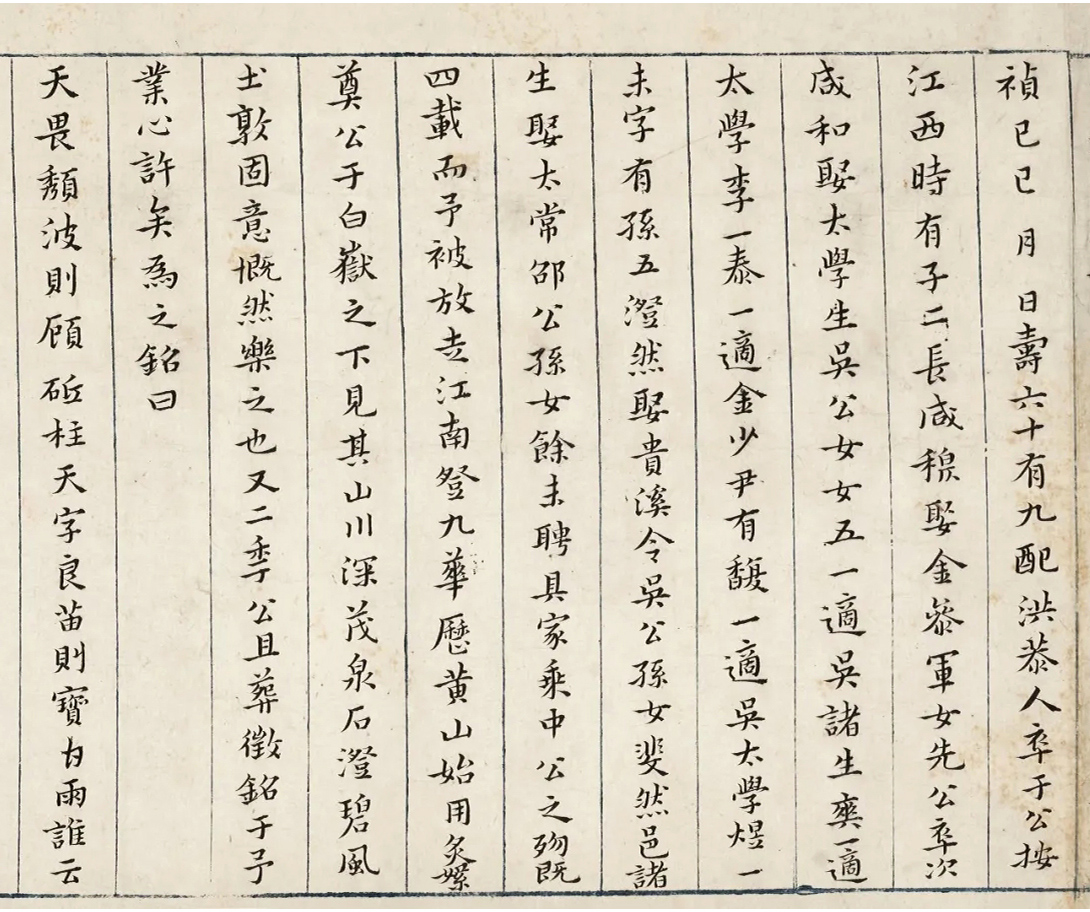 禎已已 月 日壽六十有九配洪恭人卒于公按
江西時有子二長咸穓娶金參軍女先公卒次
咸和娶太學生吳公女女五一適吳諸生奭一適
太學李一泰一適金少尹有馥一適吳太學煜一
未字有孫五澄然娶貴溪令吳公孫女斐然邑諸
生娶太常邵公孫女餘未聘具家乘中公之歿既
四載而予被放走江南登九華歷黃山始用炙絮
奠公于白嶽之下見其山川深茂泉石澄碧風
土敦固意慨然樂之也又二季公且葬徵銘于予
業心許矣為之銘曰
天畏頽波則顧砥柱天字良苗則寶甘雨誰云